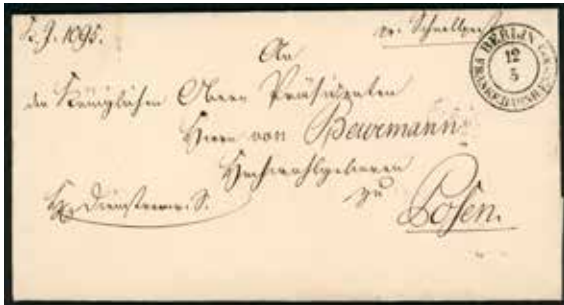 K. J. 1095.
pr. Schnellpost
BERLIN
12
5
An
den Königlichen Ober Präsidenten
Herrn von Beurmann
Hochwohlgeboren
zu
Posen.